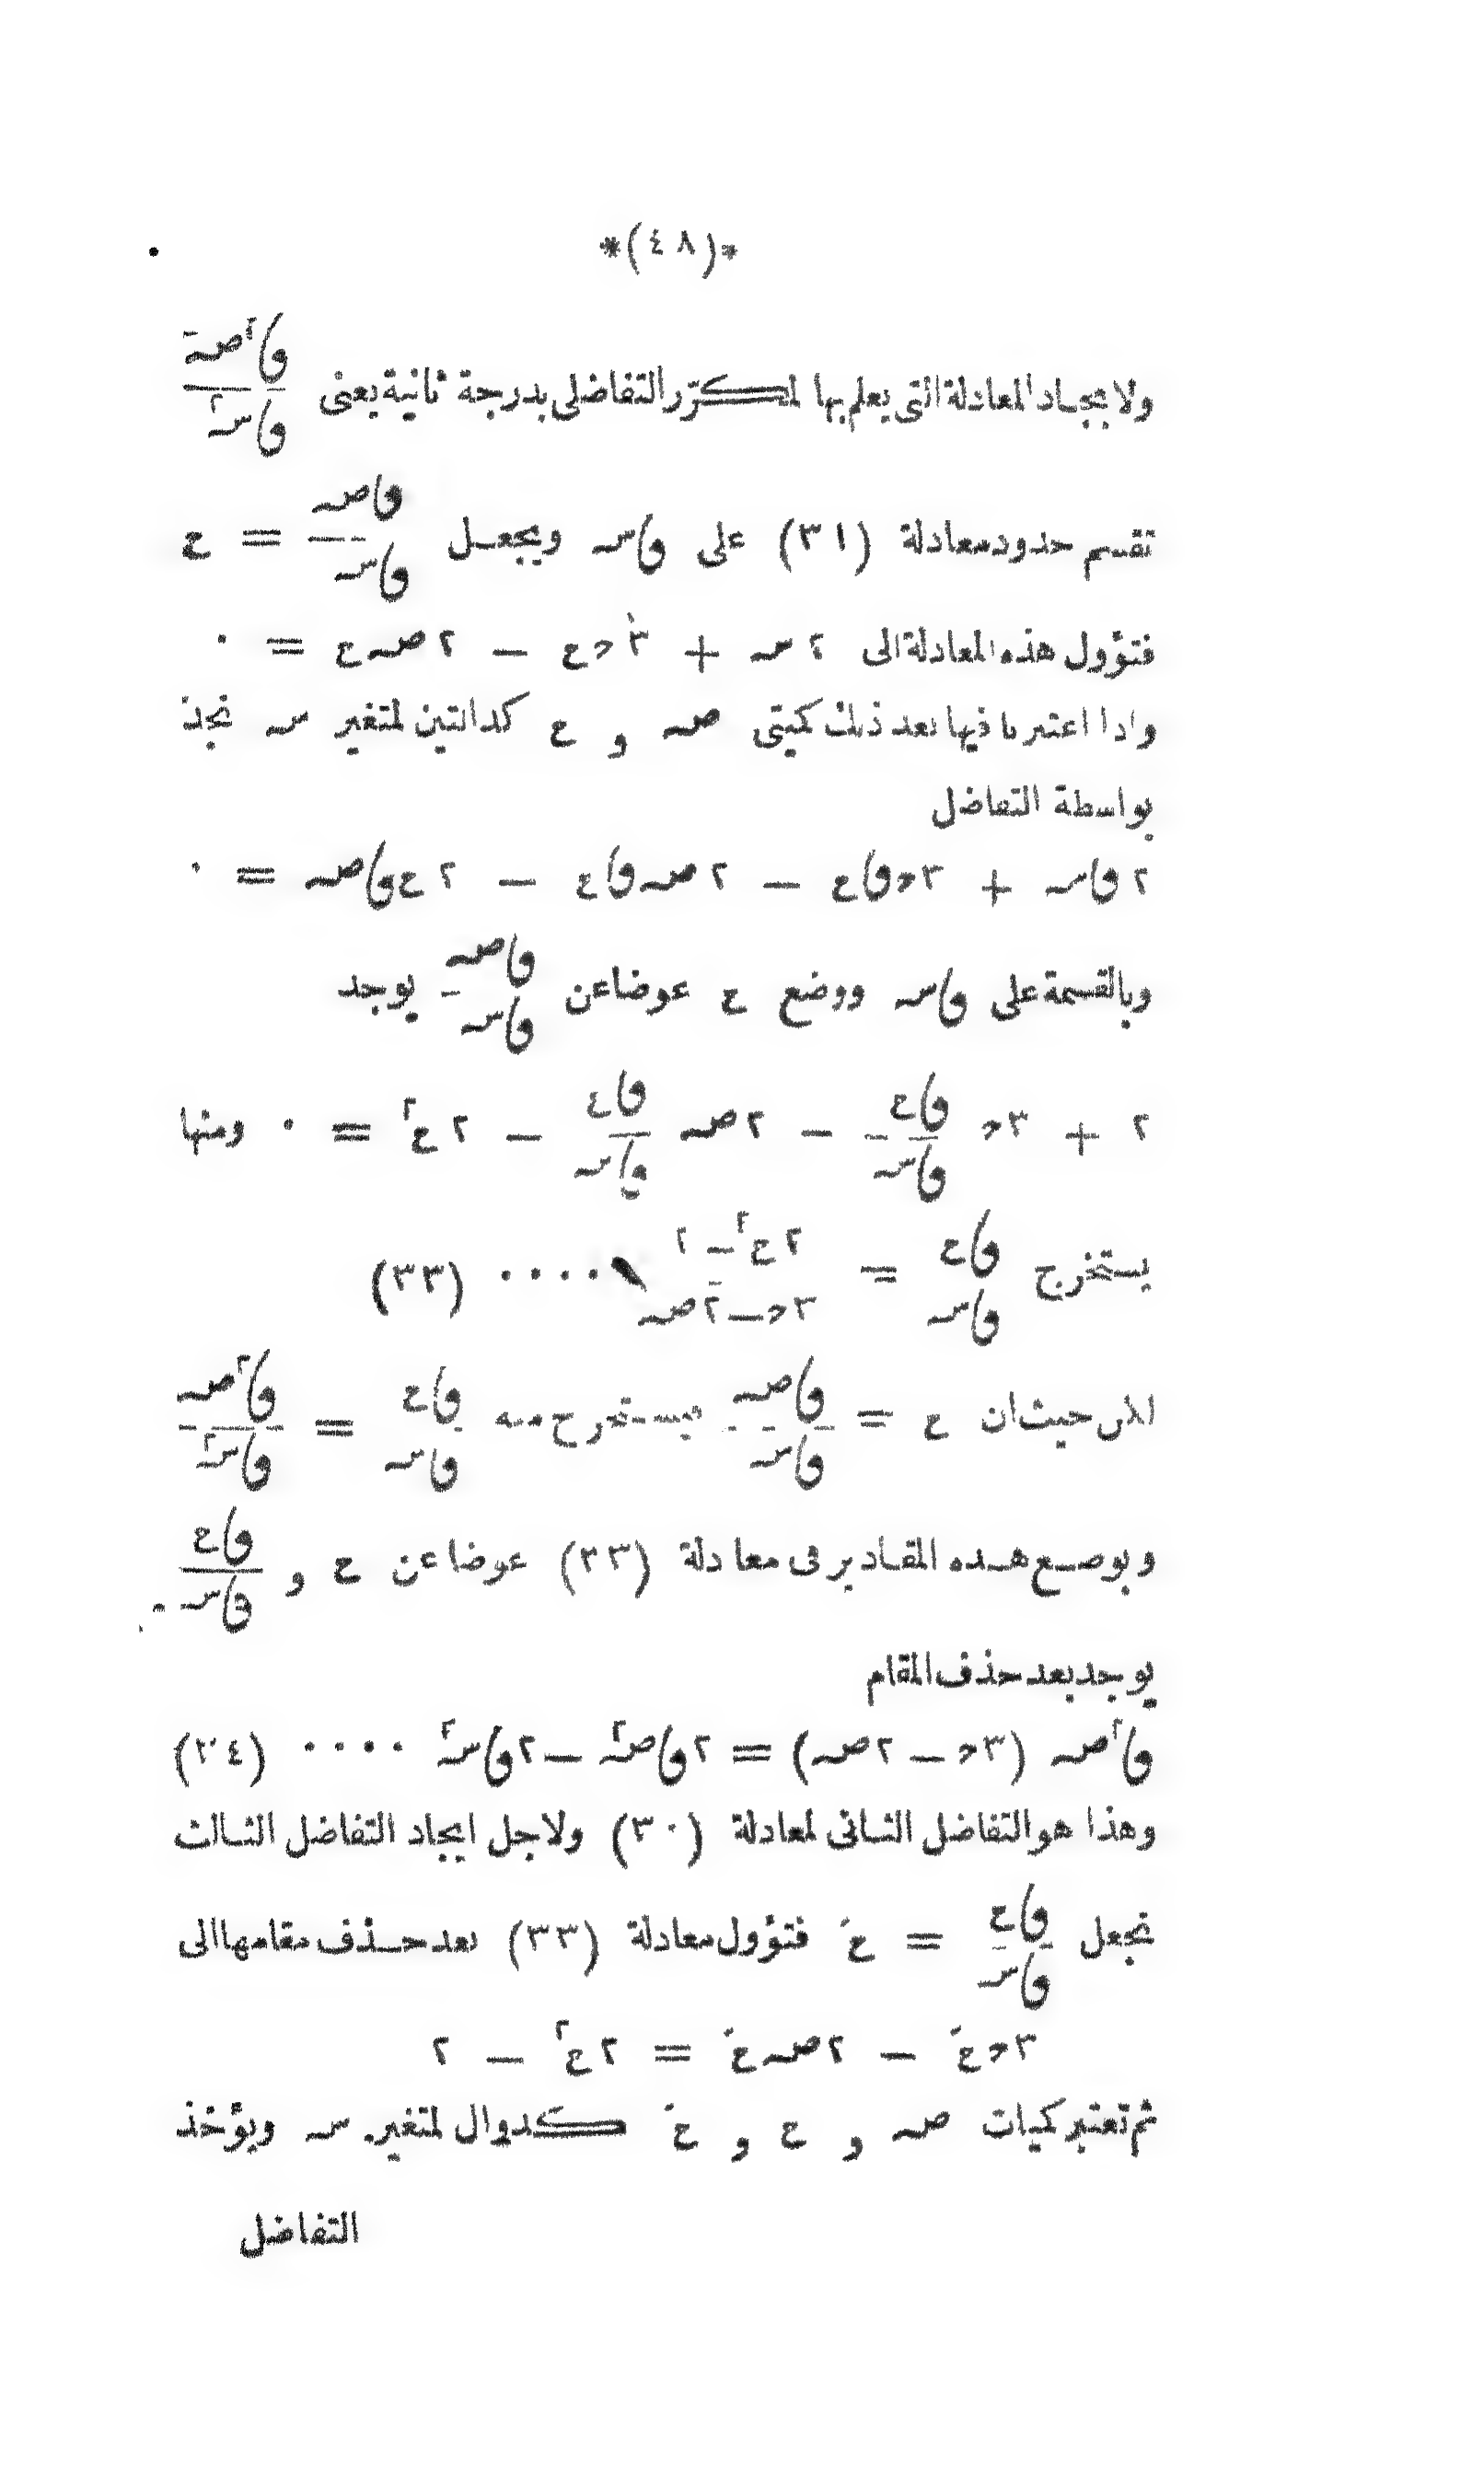 *(٤٨)*
ولايجاد المعادلة التى يعلم بها المكرّر التفاضلى بدرجة ثانية يعنى و٢صه/وس٢
تقسم حدود معادلة (٣١) على وس ويجعل وصه/وس = ع
فتؤول هذه المعادلة الى ٢س + ٣حع − ٢صهع = ٠
واذا اعتبرنا فيها بعد ذلك كميتى صه و ع كدالتين لمتغير س نجد
بواسطة التفاضل
٢وس + ٣حوع − ٢صهوع − ٢عوصه = ٠
وبالقسمة على وس ووضع ع عوضا عن وصه/وس يوجد
٢ + ٣ح وع/وس − ٢صه وع/وس − ٢ع٢ = ٠ ومنها
يستخرج وع/وس = (٢ع٢−٢)/(٣ح−٢صه) ···· (٣٣)
لكن حيث ان ع = وصه/وس فيستخرج منه وع/وس = و٢صه/وس٢
وبوضع هذه المقادير فى معادلة (٣٣) عوضا عن ع و وع/وس
يوجد بعد حذف المقام
و٢صه (٣ح − ٢صه) = ٢وصه٢ − ٢وس٢ ···· (٣٤)
وهذا هو التفاضل الثانى لمعادلة (٣٠) ولاجل ايجاد التفاضل الثالث
نجعل وع/وس = عَ فتؤول معادلة (٣٣) بعد حذف مقامها الى
٣حعَ − ٢صهعَ = ٢ع٢ − ٢
ثم تعتبر كميات صه و ع و عَ كدوال لمتغير س ويؤخذ
التفاضل